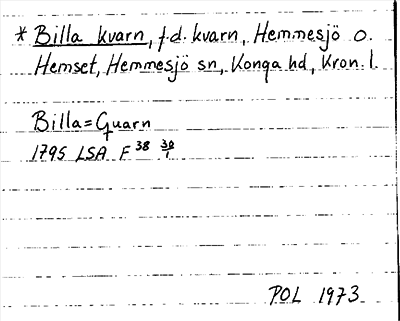 * Billa kvarn, f.d. kvarn, Hemmesjö o.
Hemset, Hemmesjö sn, Konga hd, Kron. l.
Billa=Quarn
1795 LSA F 38 30/1
POL 1973